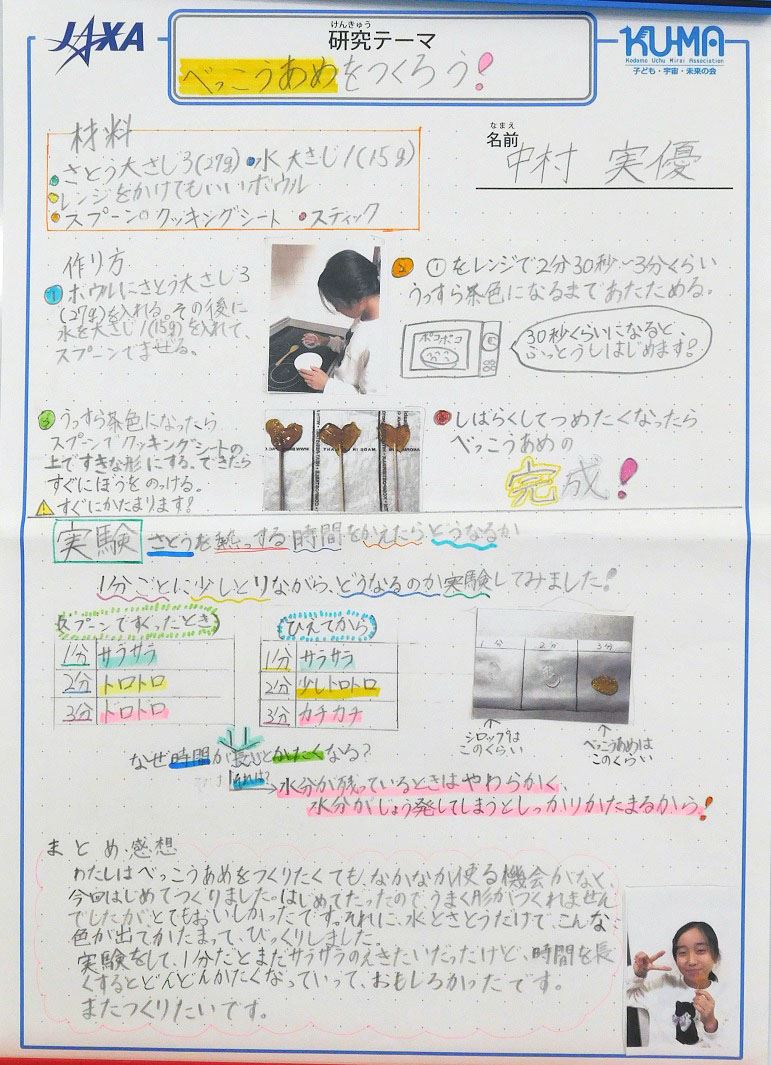 JAXA
けんきゅう
研究テーマ
べっこうあめをつくろう!
KU-MA
Kodomo Uchu Mirai Association
子ども・宇宙・未来の会
なまえ
名前
中村 実優
材料
さとう大さじ3(27g) 水 大さじ1(15g)
レンジをかけてもいいボウル
スプーン クッキングシート スティック
作り方
① ボウルにさとう大さじ3
(27g)を入れる。その後に
水を大さじ1(15g)を入れて、
スプーンでまぜる。
② ①をレンジで2分30秒〜3分くらい
うっすら茶色になるまであたためる。
ポコポコ
30秒くらいになると、
ふっとうしはじめます!
③ うっすら茶色になったら
スプーンでクッキングシートの
上ですきな形にする。できたら
すぐにぼうをのっける。
すぐにかたまります!
④ しばらくしてつめたくなったら
べっこうあめの
完成!
実験 さとうを熱っする時間をかえたらどうなるか
1分ごとに少しとりながら、どうなるのか実験してみました!
スプーンですくったとき
1分 サラサラ
2分 トロトロ
3分 トロトロ
ひえてから
1分 サラサラ
2分 少しトロトロ
3分 カチカチ
1分 2分 3分
シロップは
このくらい
べっこうあめは
このくらい
なぜ時間が長いとかたくなる?
それは?
水分が残っているときはやわらかく、
水分がじょう発してしまうとしっかりかたまるから!
まとめ、感想
わたしはべっこうあめをつくりたくても、なかなか使る機会がなく、
今回はじめてつくりました。はじめてだったのでうまく形がつくれません
でしたがとてもおいしかったです。それに、水とさとうだけで、こんな
色が出てかたまって、びっくりしました。
実験をして、1分だとまだサラサラのえきたいだったけど、時間を長
くするとどんどんかたくなっていって、おもしろかったです。
またつくりたいです。